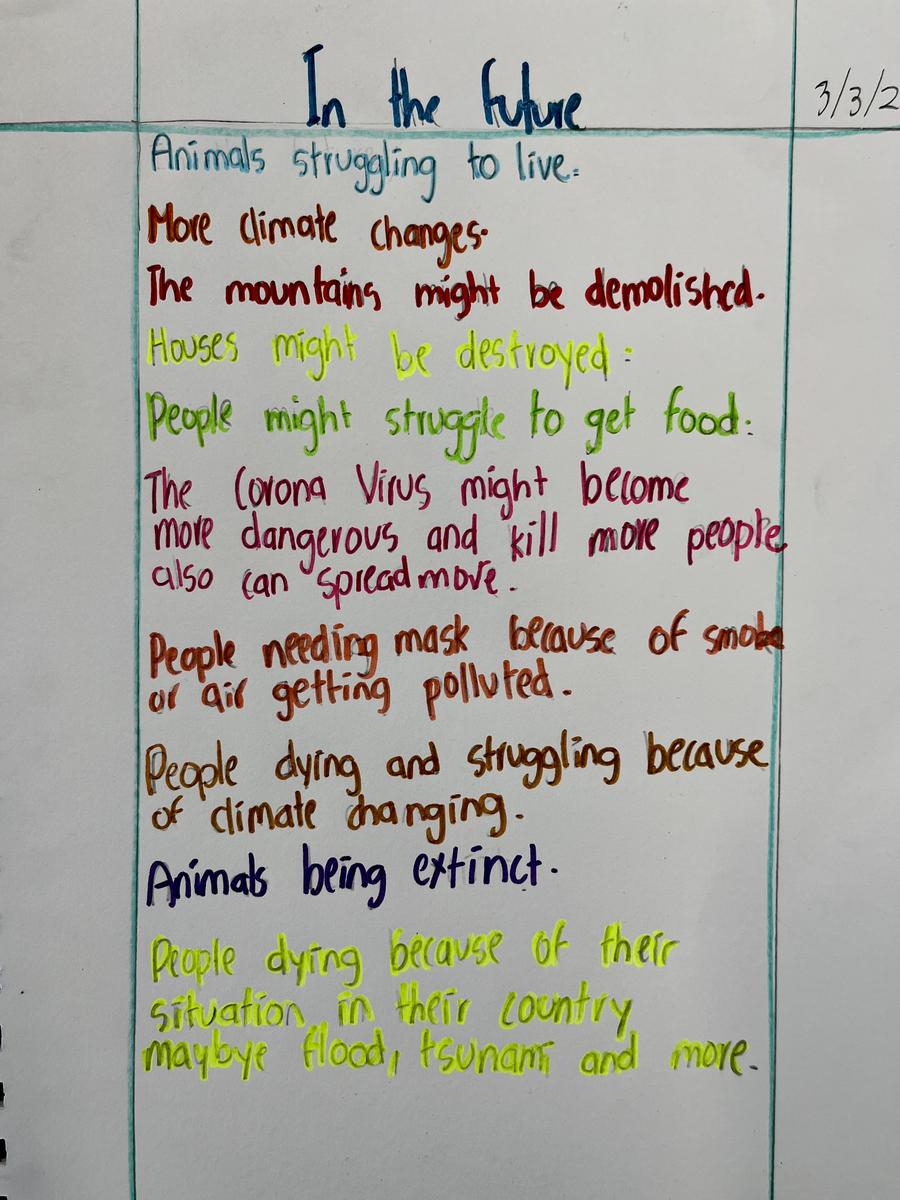 In the future
3/3/2
Animals struggling to live.
More climate changes.
The mountains might be demolished.
Houses might be destroyed.
People might struggle to get food.
The Corona Virus might become
more dangerous and kill more people
also can spread more.
People needing mask because of smoke
or air getting polluted.
People dying and struggling because
of climate changing.
Animals being extinct.
People dying because of their
situation in their country
maybye flood, tsunami and more.